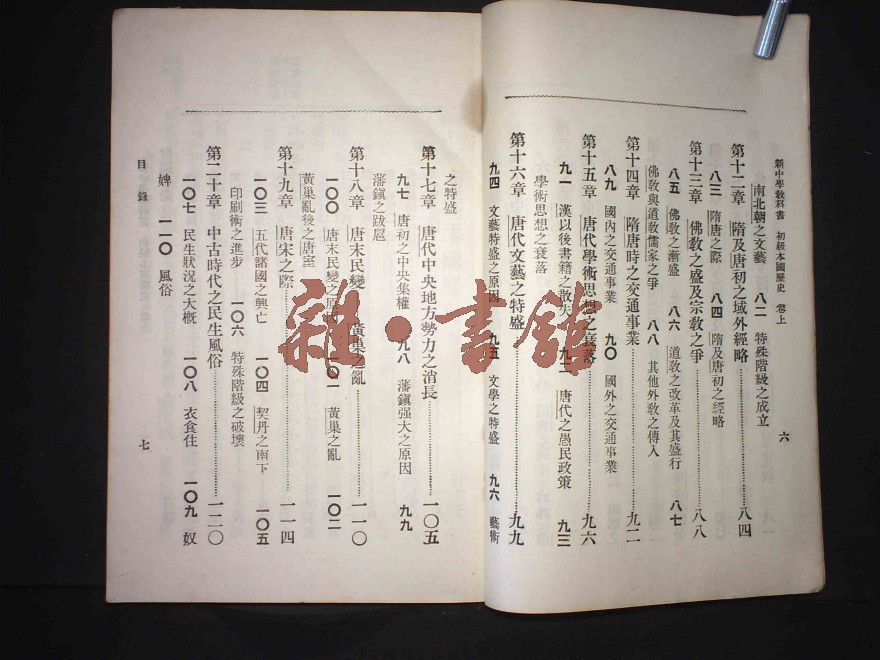 新中學教科書 初級本國歷史 卷上
六
南北朝之文藝 八二 特殊階級之成立
第十二章 隋及唐初之域外經略……八四
八三 隋唐之際 八四 隋及唐初之經略
第十三章 佛教之盛及宗教之爭……八八
八五 佛教之漸盛 八六 道教之改革及其盛行 八七
佛教與道教儒家之爭 八八 其他外教之傳入
第十四章 隋唐時之交通事業……九二
八九 國內之交通事業 九〇 國外之交通事業
第十五章 唐代學術思想之衰落……九六
九一 漢以後書籍之散失 九二 唐代之愚民政策 九三
學術思想之衰落
第十六章 唐代文藝之特盛……九九
九四 文藝特盛之原因 九五 文學之特盛 九六 藝術
之特盛
第十七章 唐代中央地方勢力之消長……一〇五
九七 唐初之中央集權 九八 藩鎮强大之原因 九九
藩鎮之跋扈
第十八章 唐末民變 黃巢之亂……一一〇
一〇〇 唐末民變之原因 一〇一 黃巢之亂 一〇二
黃巢亂後之唐室
第十九章 唐宋之際……一一四
一〇三 五代諸國之興亡 一〇四 契丹之南下 一〇五
印刷術之進步 一〇六 特殊階級之破壞
第二十章 中古時代之民生風俗……一二〇
一〇七 民生狀況之大槪 一〇八 衣食住 一〇九 奴
婢 一一〇 風俗
目錄
七
雜·書館